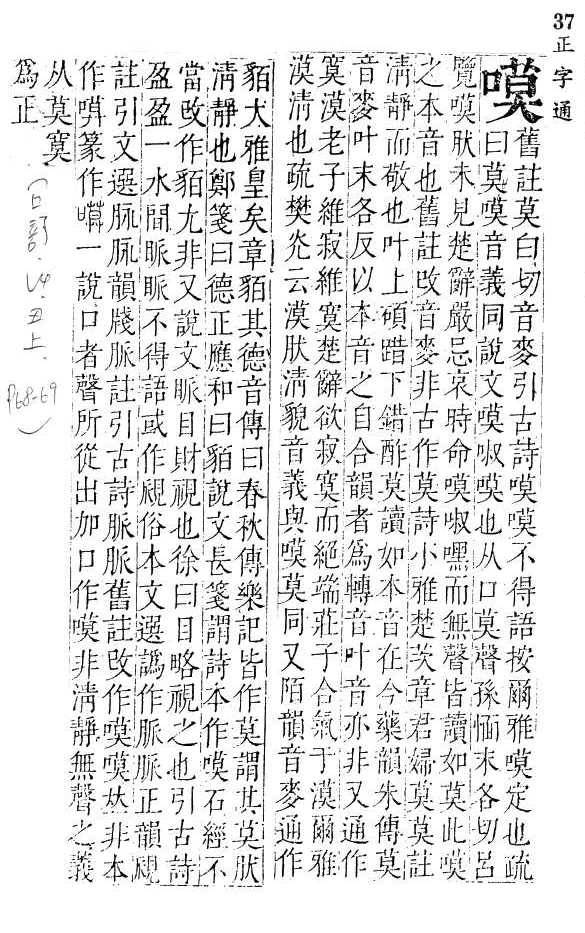 37
正字通
嗼
舊註莫白切音麥引古詩嗼嗼不得語按爾雅嗼定也疏
曰莫嗼音義同說文嗼㕽嗼也从口莫聲孫愐末各切呂
覽嗼肰未見楚辭嚴忌哀時命嗼㕽嘿而無聲皆讀如莫此嗼
之本音也舊註改音麥非古作莫詩小雅楚茨章君婦莫莫註
淸靜而敬也叶上碩踖下錯酢莫讀如本音在今藥韻朱傳莫
音麥叶末各反以本音之自合韻者爲轉音叶音亦非又通作
寞漠老子維寂維寞楚辭欲寂寞而絕端莊子合氣于漠爾雅
漠淸也疏樊光云漠肰淸貌音義與嗼莫同又陌韻音麥通作
貊大雅皇矣章貊其德音傳曰春秋傳樂記皆作莫謂其莫肰
淸靜也鄭箋曰德正應和曰貊說文長箋謂詩本作嗼石經不
當改作貊尤非又說文眽目財視也徐曰目略視之也引古詩
盈盈一水間眽眽不得語或作覛俗本文選譌作脈脈正韻覛
註引文選脈脈韻牋脈註引古詩脈脈舊註改作嗼嗼𠀤非本
作嗼篆作𡅮一說口者聲所從出加口作嗼非淸靜無聲之義
从莫寞
爲正
P68-69